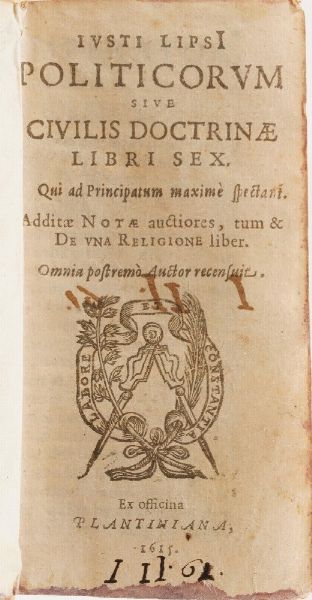 IVSTI LIPSI
POLITICORVM
SIVE
CIVILIS DOCTRINÆ
LIBRI SEX.
Qui ad Principatum maximè spectant.
Additæ NOTÆ auctiores, tum &
DE VNA RELIGIONE liber.
Omnia postremò Auctor recensuit.
I II. 61.
LABORE ET CONSTANTIA
Ex officina
PLANTINIANA,
1615.
I II. 61.